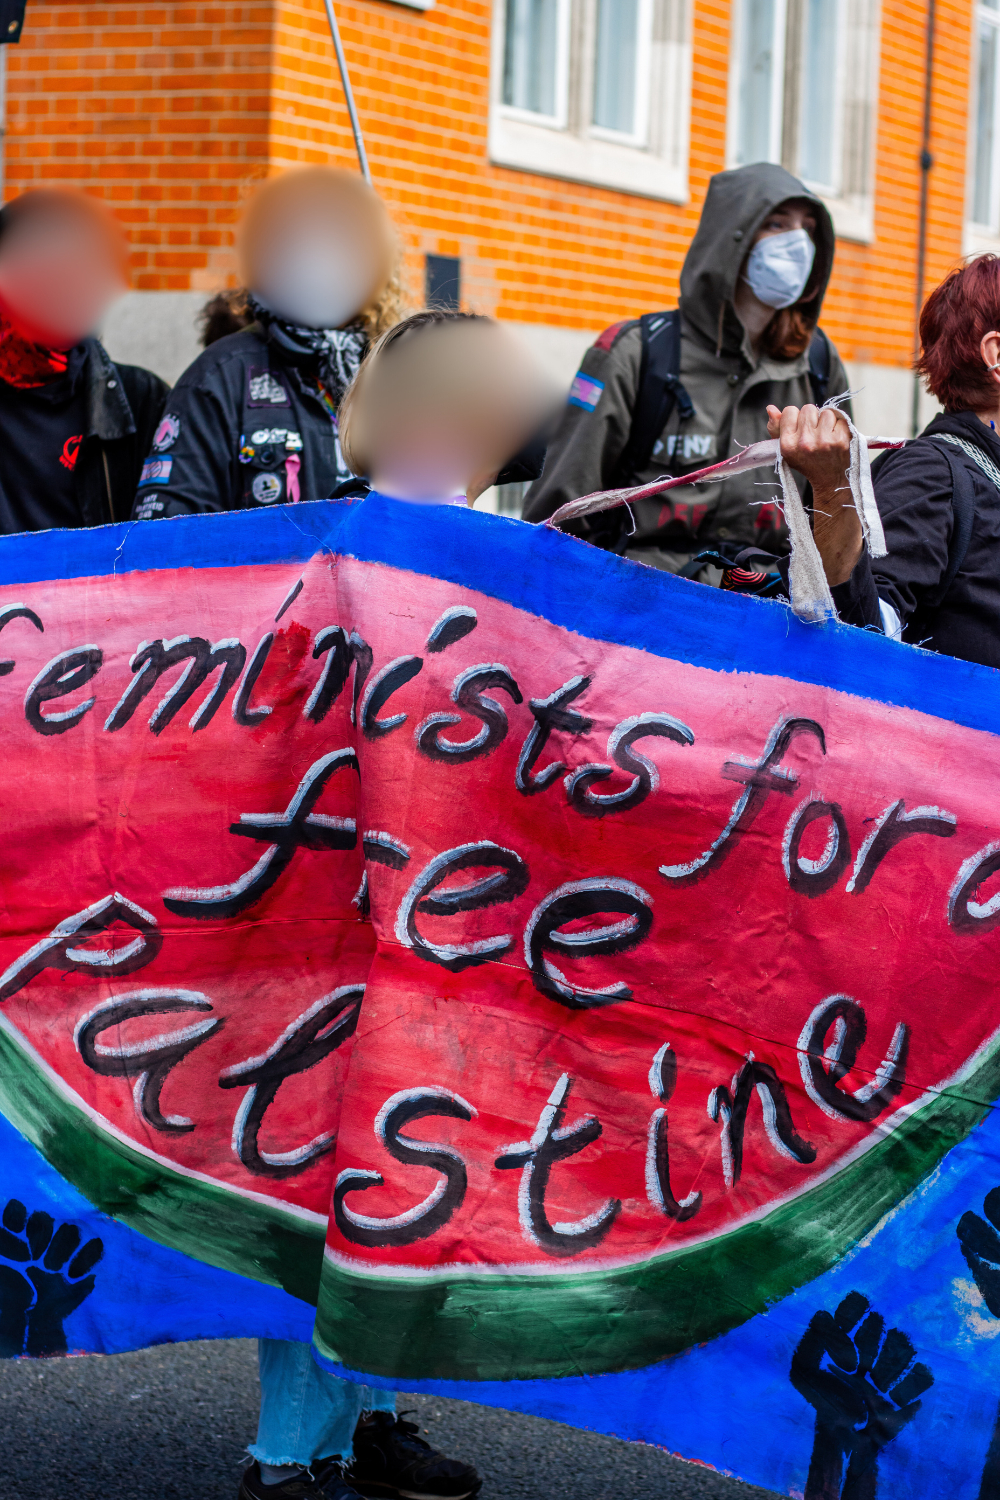 feminists for a
free
Palestine
DENY